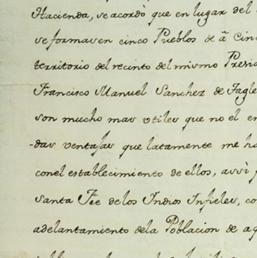 Hacienda, se acordó que en lugar del
se formasen cinco Pueblos de â Cin
territorio del recinto del mismo Presi
Francisco Manuel Sanchez de Tagle
son mucho mas utiles que no el en
dar ventajas que latamente me ha
con el establecimiento de ellos, assi p
santa Fee de los Indios Infieles, co
adelantamiento dela Poblacion de aq